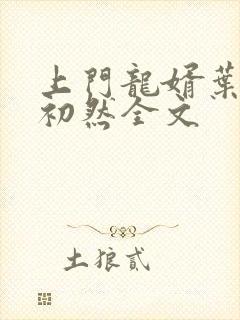 上門龍婿葉
初然全文
土狼貳